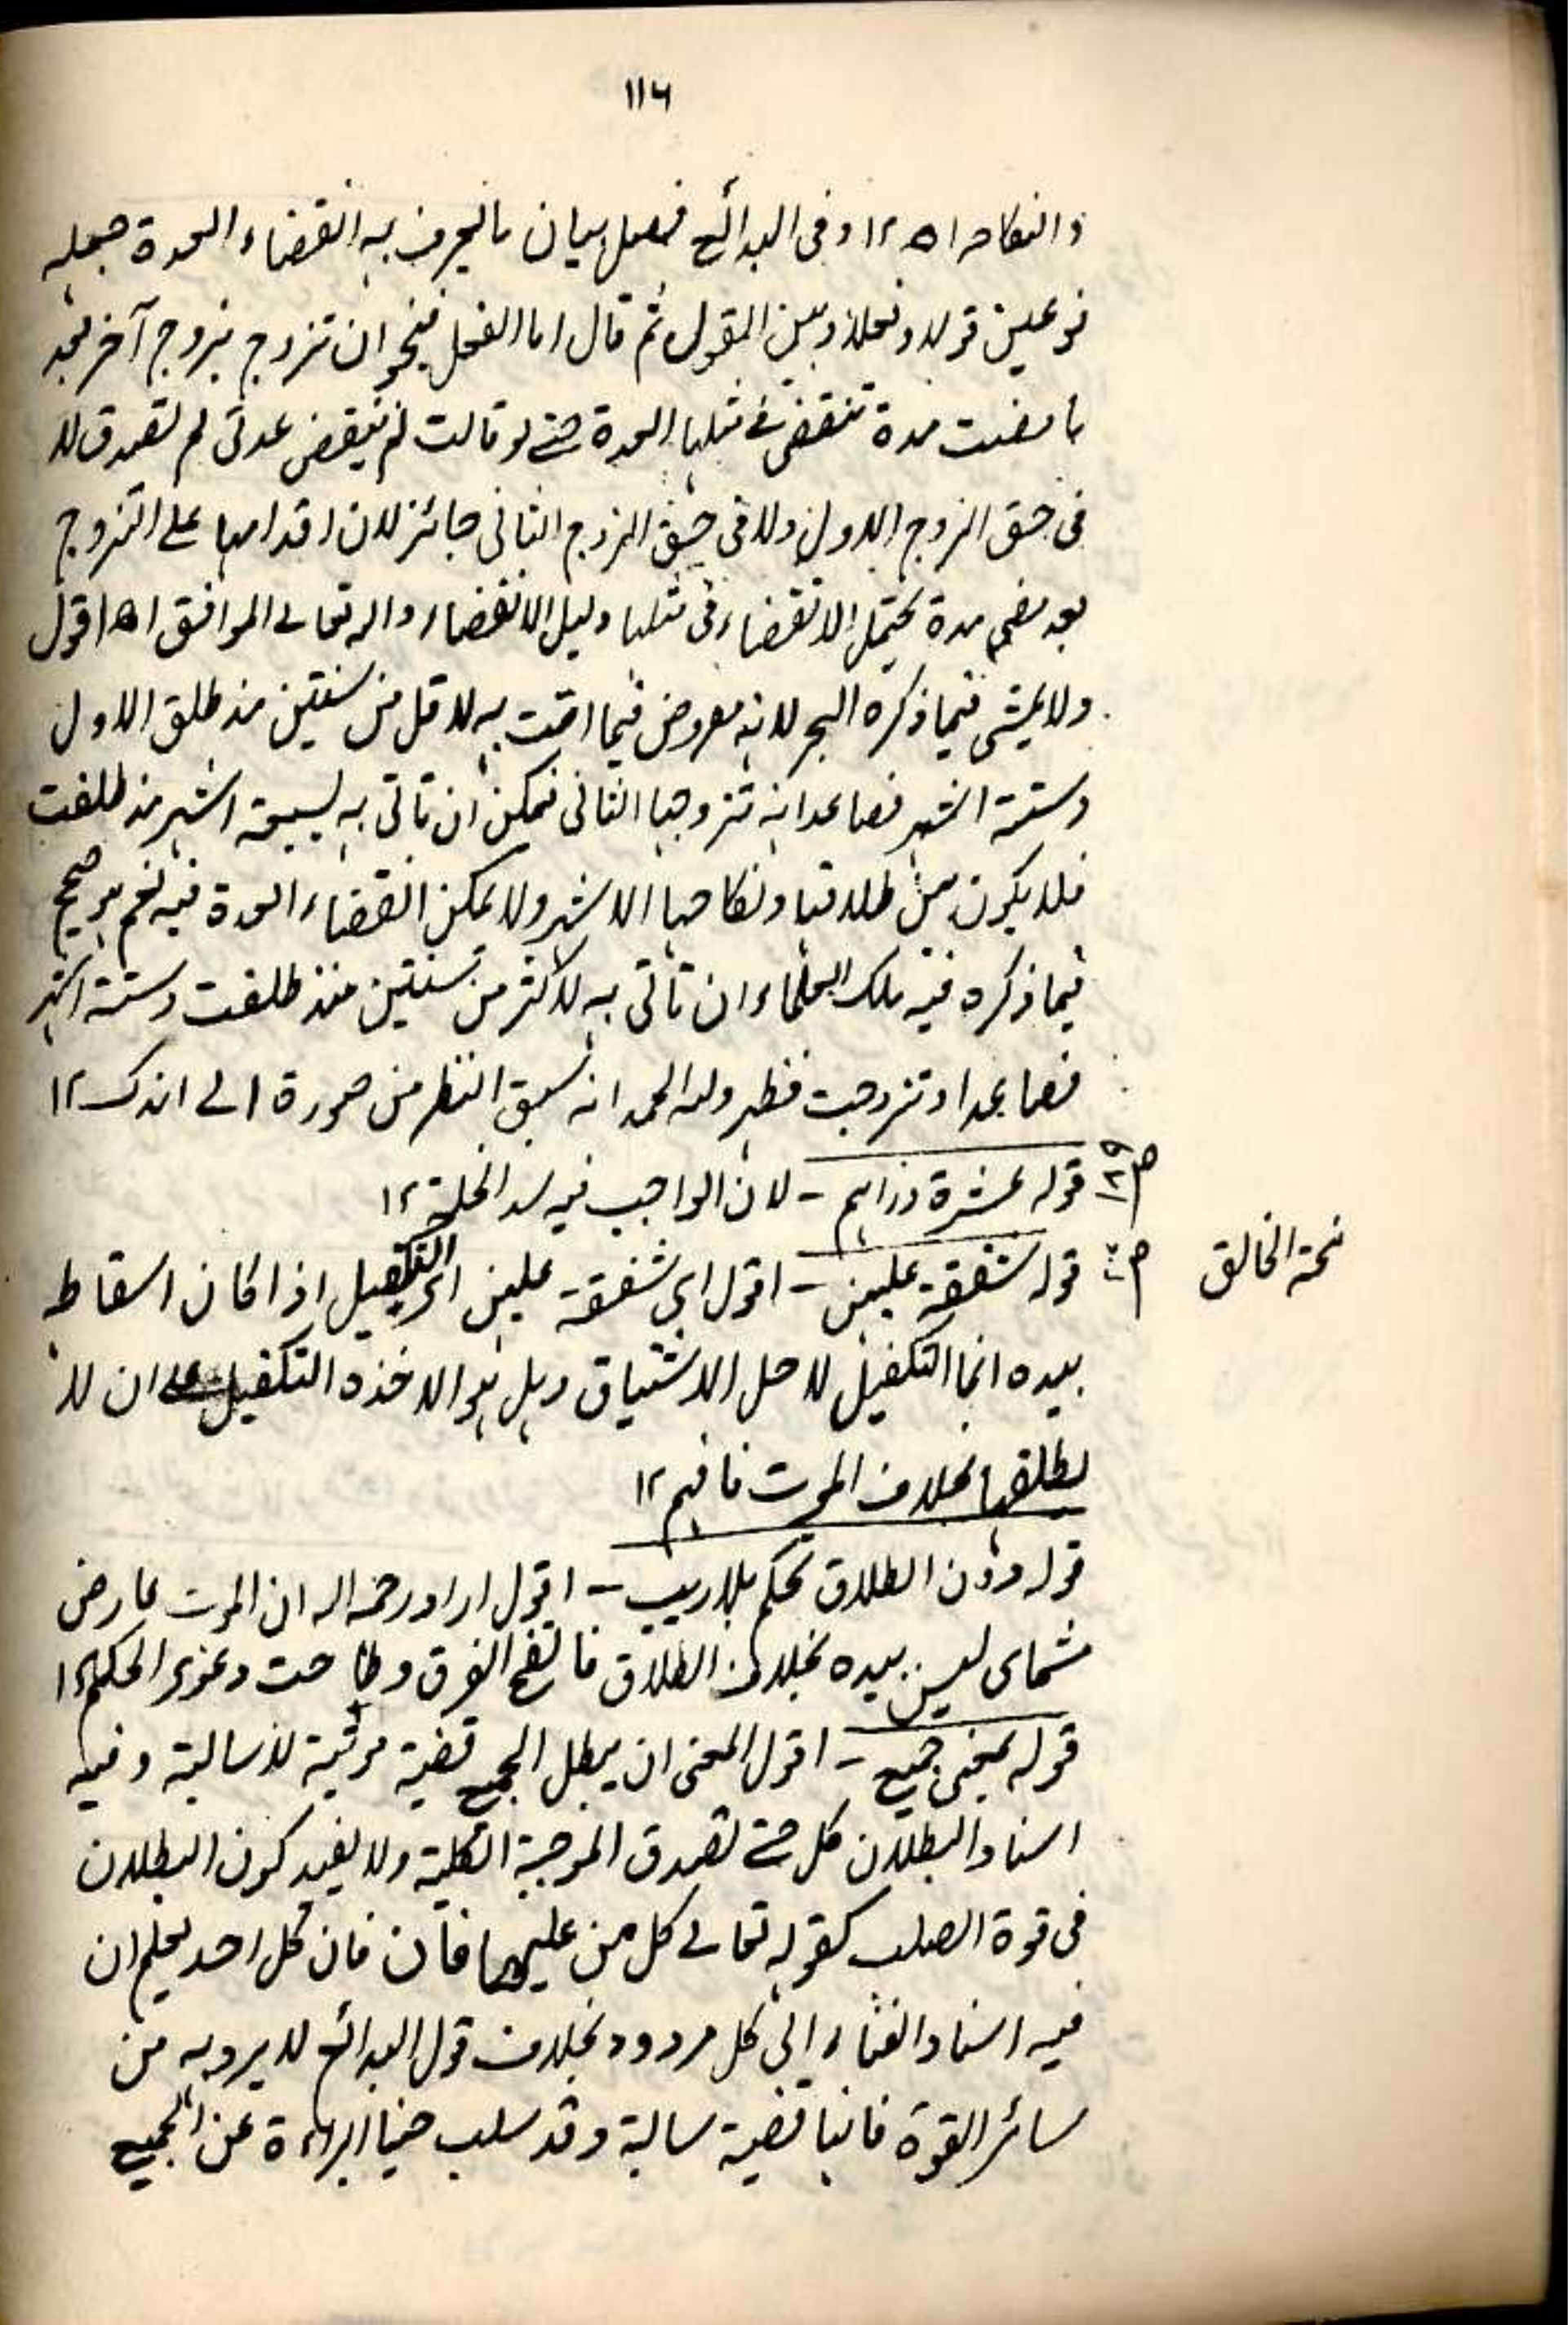 ١١٦
والنكاح اھ ١٢ وفى البدائع فصل بيان ما يعرف به انقضاء العدة جعله
نوعين قولا وفعلا وبين القول ثم قال اما الفعل فنحو ان تزوج بزوج آخر بعد
ما مضت مدة تنقضى فے مثلها العدة حتے لو قالت لم ينقض عدتى لم تصدق لا
فى حق الزوج الاول ولا فى حق الزوج الثانى جائز لان اقدامها على التزوج
بعد مضى مدة يحتمل الانقضاء فى مثلها دليل الانقضاء والله تعالے الموافق اھ اقول
ولا يمشى فيما ذكره البحر لانه مفروض فيما اتت به لاقل من سنتين منذ طلق الاول
وستة اشهر فصاعدا منه تزوجها الثانى فيمكن ان تأتى به لسبعة اشهر منذ طلقت
فلا يكون بين طلاقها ونكاحها الا شهر ولا يمكن انقضاء العدة فيه نعم هو صحيح
فيما ذكره فيه ملك العلماء ان تأتى به لاكثر من سنتين منذ طلقت وستة اشهر
فصاعدا وتزوجت فظهر ولله الحمد انه سبق النظر من صورة الے اندك ١٢
ص٢٩ قوله عشرة دراهم – لان الواجب فيه سد الخلة ١٢
منحة الخالق
قوله شفقة عليهن – اقول اى شفقة عليهن اى التكفيل اذا كان اسقاطه
بيده انما التكفيل لاجل الاشتياق وهل هو الا خذه التكفيل ان لا
يطلقها بخلاف الموت فافهم ١٢
قوله دون الطلاق تحكم بلا ريب – اقول اراد رحمه الله ان الموت عارض
سماوى ليس بيده بخلاف الطلاق فاتضح الفرق وطاحت دعوى الحكم ١٢
قوله بمعنى جميع – اقول المعنى ان يبطل الجميع قضية موجبة لا سالبة وفيه
اسناد البطلان كل حتے تصدق الموجبة الكلية ولا يفيد كون البطلان
فى قوة السلب كقوله تعالے كل من عليها فان فان كل احد يعلم ان
فيه اسناد الفناء الى كل مردود بخلاف قول البدائع لا يبرو به من
سائر القوة فانها قضية سالبة وقد سلب البراءة عن الجميع